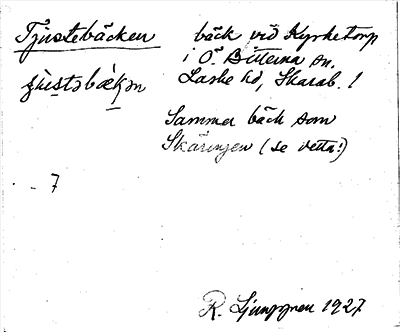 Tjustebäcken bäck vid Kyrketorp
i Ö. Bitterna sn,
Laske hd, Skarab. l
Samma bäck som
Skäringen (se detta!)
7
R. Ljunggren 1927